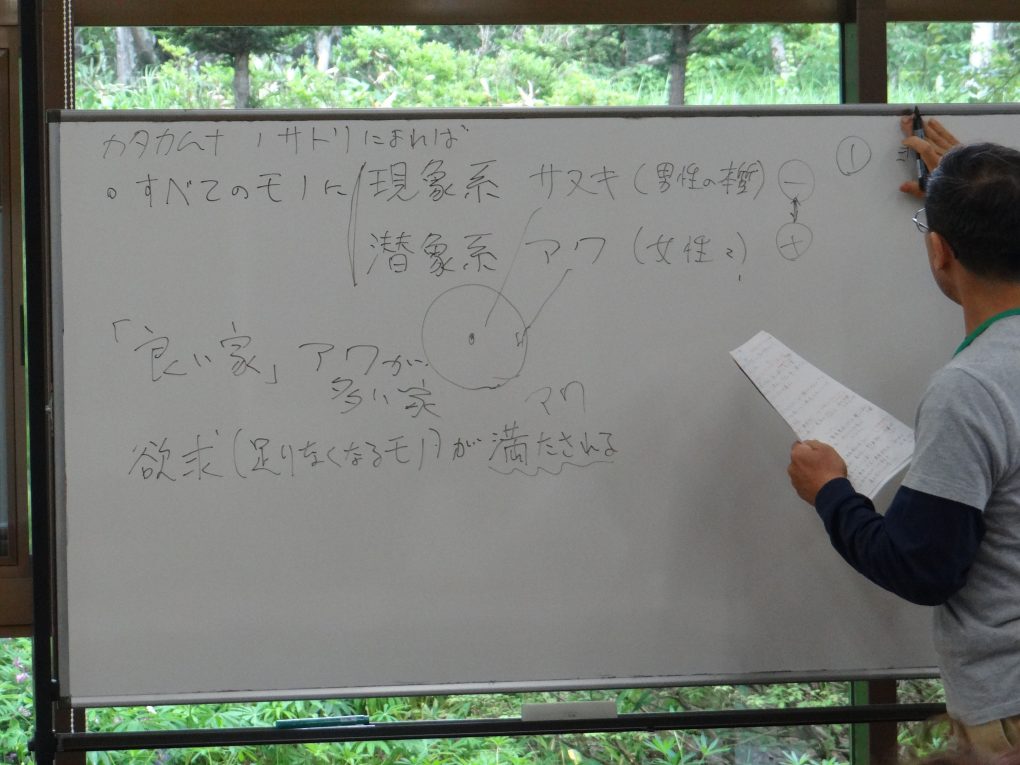 カタカムナ ノ サトリによれば
①
○すべてのモノに 現象系 サヌキ (男性の本質) −
潜象系 アワ (女性〃) +
「良い家」 アワが
多い家
アワ
欲求 (足りなくなるモノ) が 満たされる